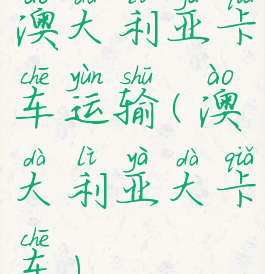 ào dà lì yà qiǎ
澳大利亚卡
chē yùn shū ào
车运输(澳
dà lì yà dà qiǎ
大利亚大卡
chē
车)